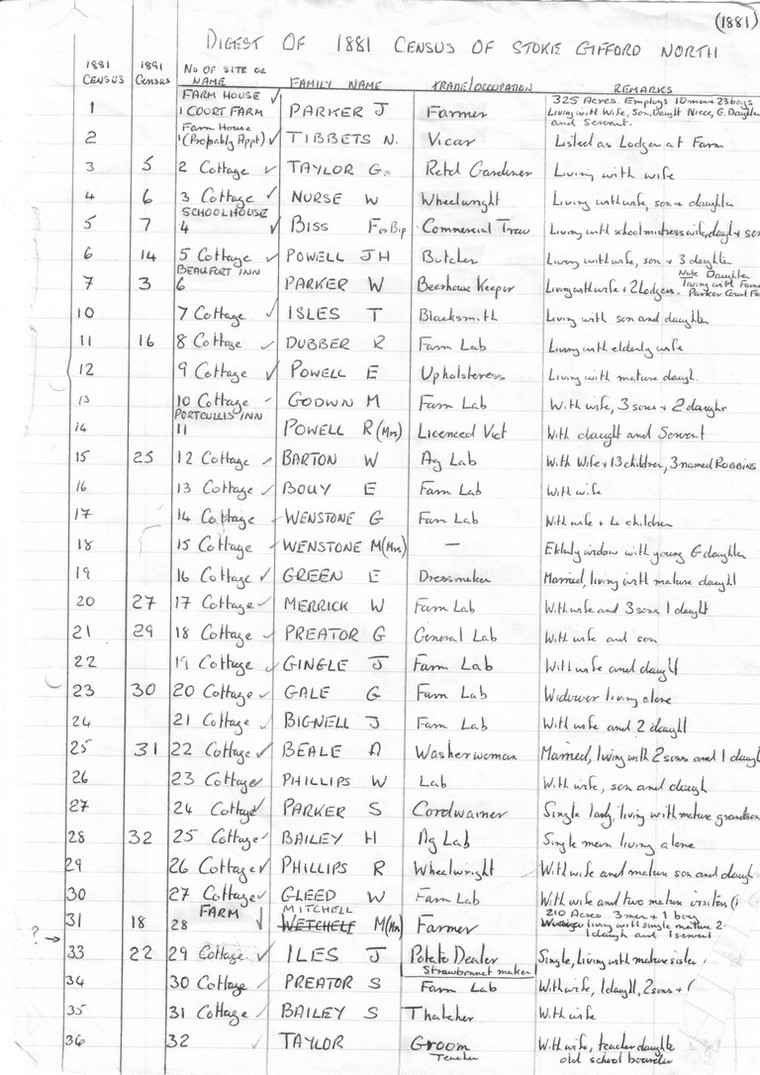 (1881)
DIGEST OF 1881 CENSUS OF STOKE GIFFORD NORTH
1881 CENSUS 1891 CENSUS NO OF SITE OR NAME FAMILY NAME TRADE/OCCUPATION REMARKS
1 FARM HOUSE 1 COURT FARM ✓ PARKER J Farmer 325 Acres. Employs 10 men + 23 boys Living with Wife, Son, Daught Niece, G. Daughter and Servant.
2 Farm House 1 (Probably Appt) ✓ TIBBETS N. Vicar Listed as Lodger at Farm
3 5 2 Cottage ✓ TAYLOR G. Retd Gardiner Living with wife
4 6 3 Cottage ✓ NURSE W Wheelwright Living with wife, son + daughter
5 7 SCHOOLHOUSE 4 ✓ BISS F or Bip Commercial Trav Living with school mistress wife, daught + son
6 14 5 Cottage ✓ POWELL JH Butcher Living with wife, son + 3 daughter
7 3 BEAUFORT INN 6 PARKER W Beerhouse Keeper Living with wife + 2 Lodgers. Note Daughter living with Farmer Parker Court Fa
10 7 Cottage ✓ ISLES T Blacksmith Living with son and daughter
11 16 8 Cottage ✓ DUBBER R Farm Lab Living with elderly wife
12 9 Cottage ✓ POWELL E Upholsteress Living with mature daugh.
13 10 Cottage ✓ GODWN M Farm Lab With wife, 3 sons + 2 daughs
14 PORTCULLIS INN 11 POWELL R (Mrs) Licenced Vict With daught and Servent
15 25 12 Cottage ✓ BARTON W Ag Lab With Wife + 13 children, 3 named ROBBINS
16 13 Cottage ✓ BOUY E Farm Lab With wife
17 14 Cottage ✓ WENSTONE G Farm Lab With wife + 4 children
18 15 Cottage ✓ WENSTONE M (Mrs) — Elderly widow with young G daughter
19 16 Cottage ✓ GREEN E Dressmaker Married, living with mature daught
20 27 17 Cottage ✓ MERRICK W Farm Lab With wife and 3 sons 1 daught
21 29 18 Cottage ✓ PREATOR G General Lab With wife and son
22 19 Cottage ✓ GINGLE J Farm Lab With wife and daught
23 30 20 Cottage ✓ GALE G Farm Lab Widower living alone
24 21 Cottage ✓ BIGNELL J Farm Lab With wife and 2 daught
25 31 22 Cottage ✓ BEALE A Washerwoman Married, living with 2 sons and 1 daught
26 23 Cottage ✓ PHILLIPS W Lab With wife, son and daugh
27 24 Cottage ✓ PARKER S Cordwainer Single lady, living with mature grandson
28 32 25 Cottage ✓ BAILEY H Ag Lab Single man living alone
29 26 Cottage ✓ PHILLIPS R Wheelwright With wife and mature son and daugh
30 27 Cottage ✓ GLEED W Farm Lab With wife and two mature visitors (
31 18 FARM 28 ✓ MITCHELL WETCHELL M (Mrs) Farmer 210 Acres 3 men + 1 boy living with single mature 2 1 daugh and 1 servent
? →
33 22 29 Cottage ✓ ILES J Potato Dealer Single, living with mature sister
Strawbonnet maker
34 30 Cottage ✓ PREATOR S Farm Lab With wife, 1 daught, 2 sons + 1
35 31 Cottage ✓ BAILEY S Thatcher With wife
36 32 ✓ TAYLOR Groom Teacher With wife, teacher daughter old school boarder